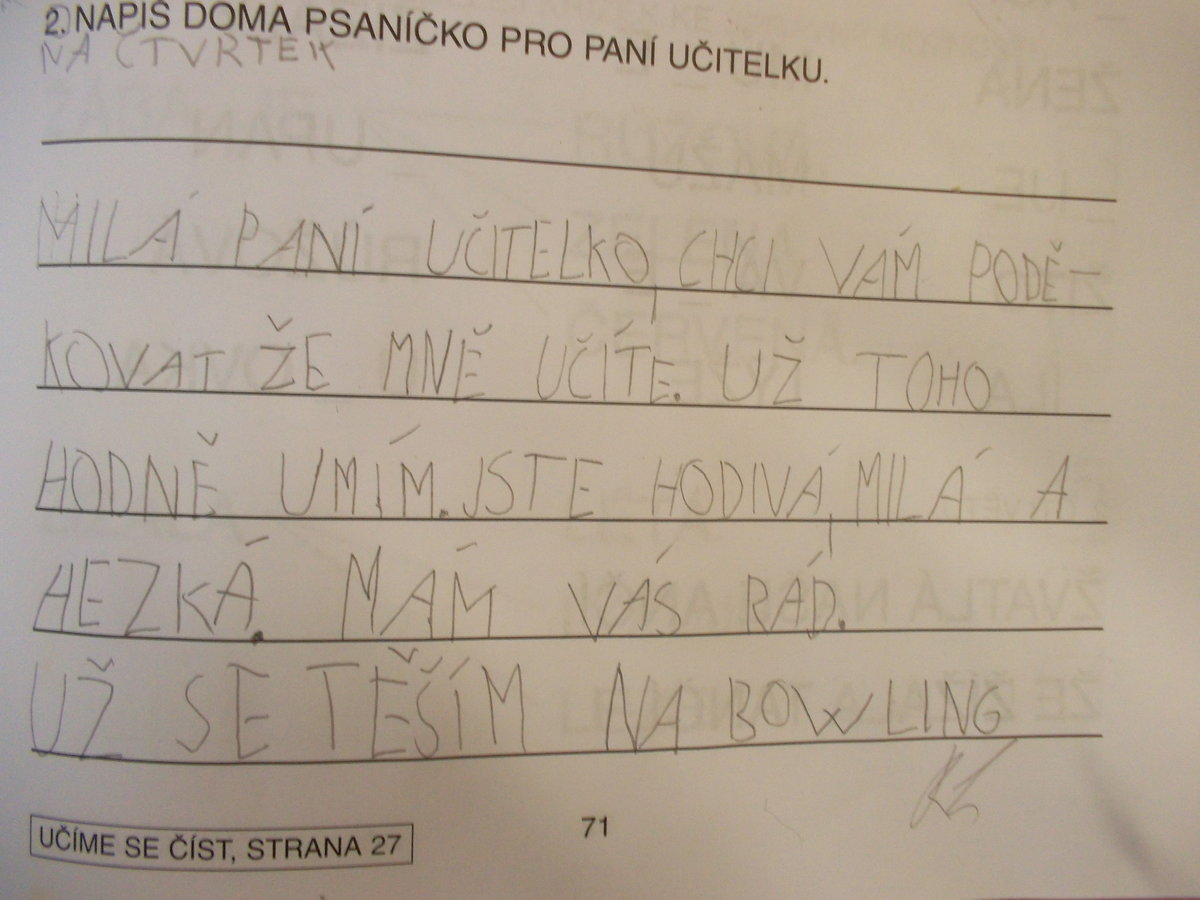 2. NAPIŠ DOMA PSANÍČKO PRO PANÍ UČITELKU.
NA ČTVRTEK
MILÁ PANÍ UČITELKO, CHCI VÁM PODĚ-
KOVAT ŽE MNĚ UČÍTE. UŽ TOHO
HODNĚ UMÍM. JSTE HODIVÁ, MILÁ A
HEZKÁ. MÁM VÁS RÁD.
UŽ SE TĚŠÍM NA BOWLING
UČÍME SE ČÍST, STRANA 27
71